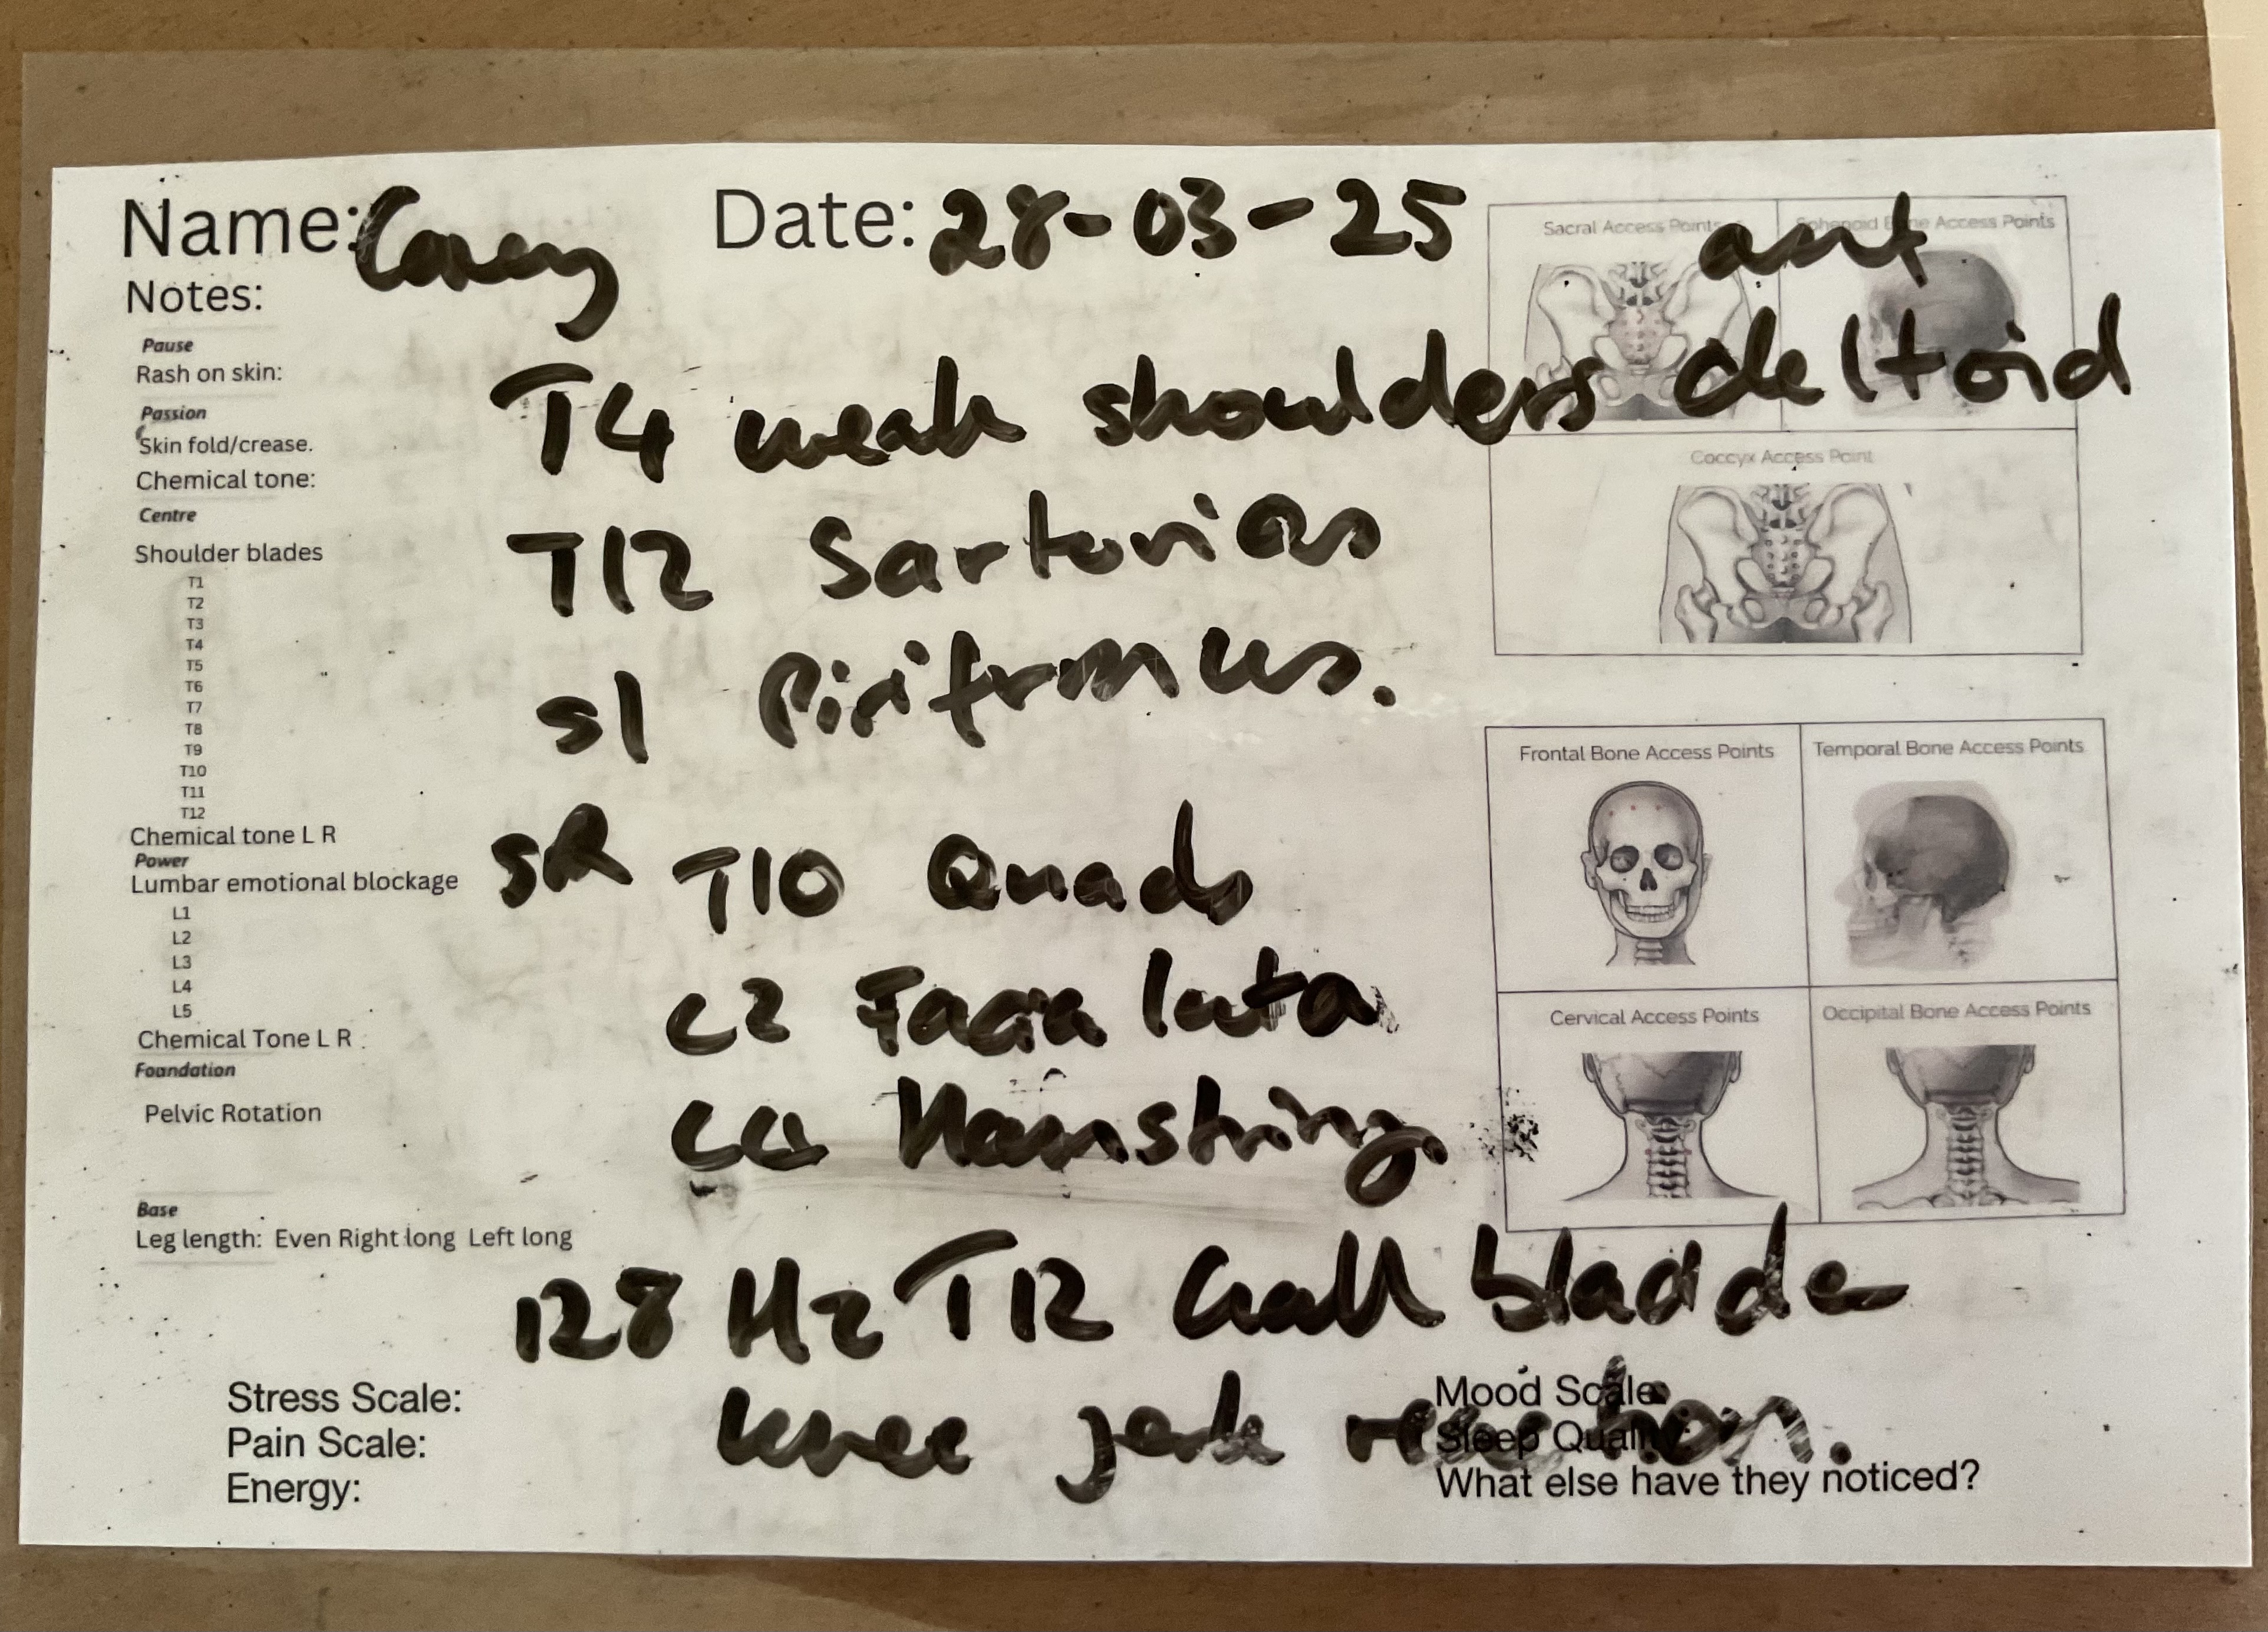 Name: Corey Date: 28-03-25
Notes:
Pause
Rash on skin:
Passion
Skin fold/crease.
Chemical tone:
Centre
Shoulder blades
T1
T2
T3
T4
T5
T6
T7
T8
T9
T10
T11
T12
Chemical tone L R
Power
Lumbar emotional blockage
L1
L2
L3
L4
L5
Chemical Tone L R
Foundation
Pelvic Rotation
Base
Leg length: Even Right long Left long
ant
T4 weak shoulders deltoid
T12 Sartorias
S1 Piriformus.
SR T10 Quads
C2 Facia lata
Hamstring.
128 Hz T12 Gall bladder
knee jerk reaction.
Sacral Access Points
Sphenoid Bone Access Points
Coccyx Access Point
Frontal Bone Access Points
Temporal Bone Access Points
Cervical Access Points
Occipital Bone Access Points
Stress Scale:
Pain Scale:
Energy:
Mood Scale:
Sleep Quality:
What else have they noticed?